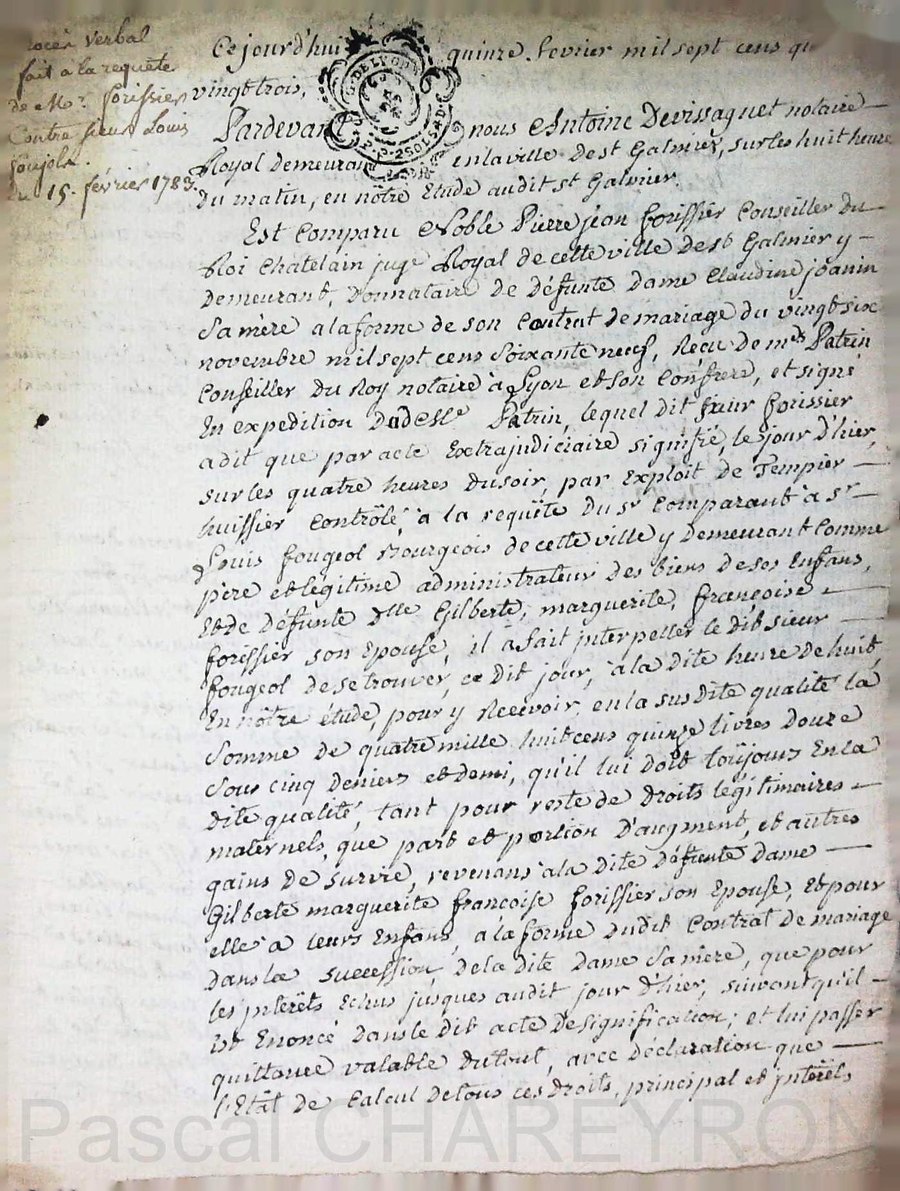 rocès verbal
fait à la requête
de Mr. forissier
Contre sieur Louis
fougols.
du 15. février 1783.
Cejourd'hui quinze fevrier mil sept cens qu
vingt trois,
Pardevant nous Antoine Devissaguet notaire
Royal demeurant en la ville de st Galmier, sur les huit heure
du matin, en nôtre Etude audit st Galmier.
Est Comparu Noble Pierre jean forissier Conseiller du
Roi Chatelain juge Royal de cette ville de st Galmier y
demeurant, donnataire de défunte dame Claudine joanin
Sa mère a la forme de son Contrat de mariage du vingt six
novembre mil sept cens Soixante neuf, Recu de me Patrin
Conseiller du Roy notaire à Lyon et son Confrere, et signé
En expedition dudt Me Patrin, lequel dit sieur forissier
a dit que par acte Extrajudiciaire signifié, le jour d'hier,
sur les quatre heures du soir, par Exploit de Tempier
huissier Contrôlé, à la requête du sr Comparant à sr
Louis fougeol Bourgeois de cette ville y demeurant Comme
père et légitime administrateur des biens de ses Enfans,
Et de défunte dlle Gilberte, marguerite, françoise
forissier son Epouse, il a fait interpeller le dit sieur
fougeol de se trouver, ce dit jour, à la dite heure de huit,
En nôtre étude, pour y Recevoir, en la sus dite qualité la
Somme de quatre mille huit cens quinze livres douze
Sous cinq deniers et demi, qu'il lui doit toujours En la
dite qualité, tant pour reste de droits légitimaires
maternels, que part et portion d'augment, et autres
gains de survie, revenans à la dite défunte dame
Gilberte marguerite françoise forissier son Epouse, Et pour
elle a leurs Enfans, a la forme dudit Contrat de mariage
dans la succession de la dite dame Sa mère, que pour
les jnterêts Echus jusques audit jour d'hier, suivant qu'il
Est Enoncé dans le dit acte de signification; et lui passer
quittance valable du tout, avec déclaration que
l'Etat de Calcul de tous ces droits, principal et jnterêts,
Pascal CHAREYRON